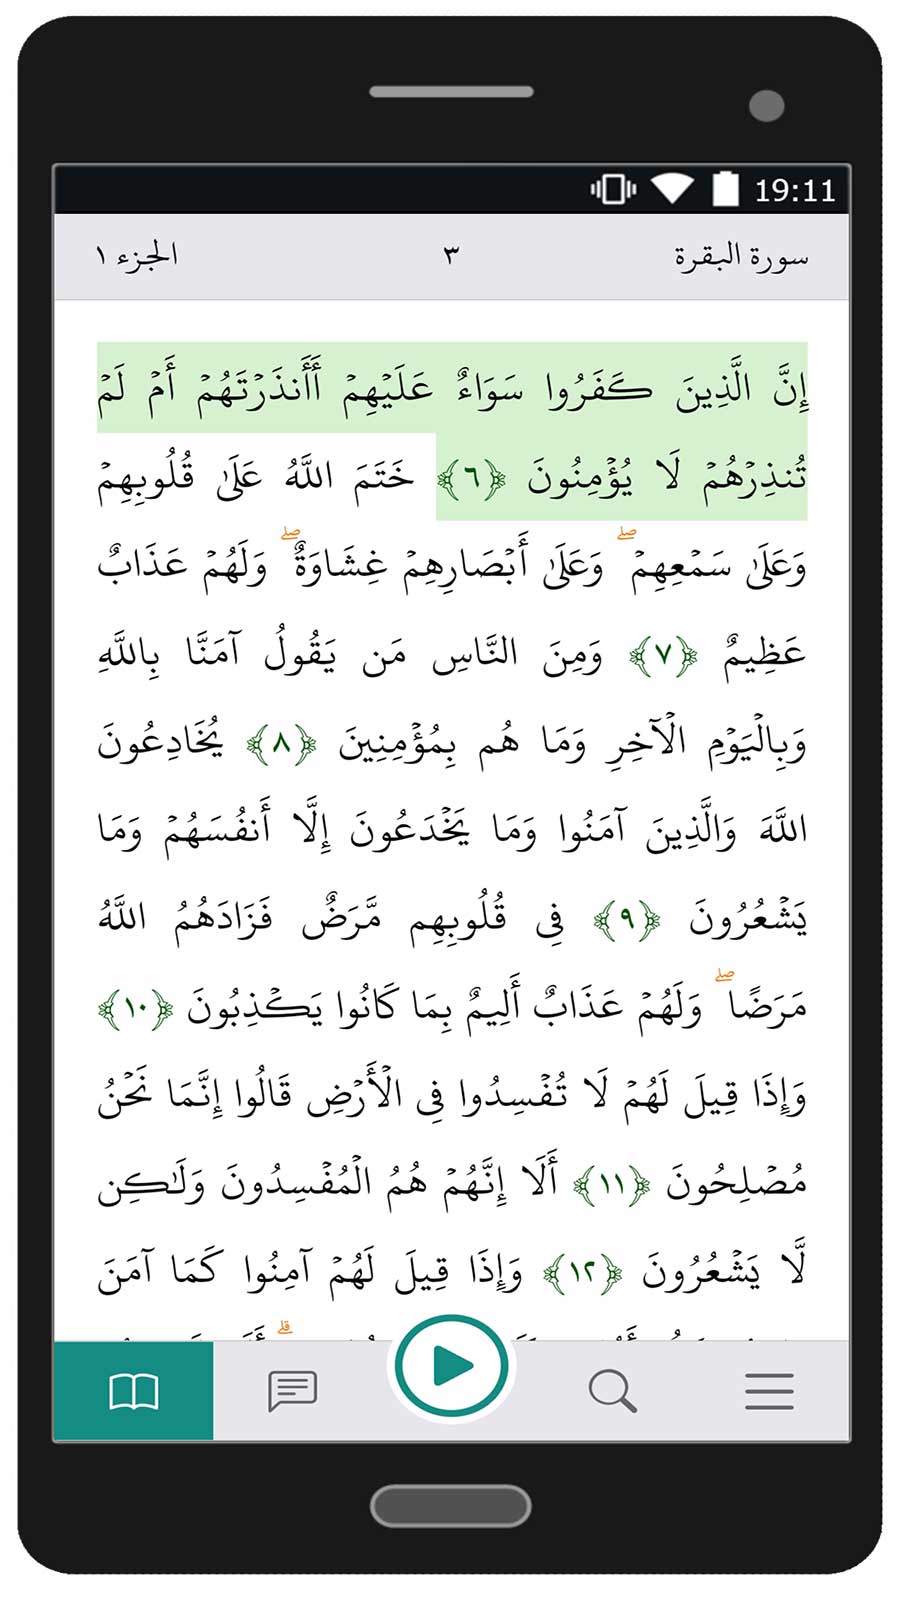 19:11
سورة البقرة ٣ الجزء ١
إِنَّ الَّذِينَ كَفَرُوا سَوَاءٌ عَلَيْهِمْ أَأَنذَرْتَهُمْ أَمْ لَمْ
تُنذِرْهُمْ لَا يُؤْمِنُونَ ﴿٦﴾ خَتَمَ اللَّهُ عَلَىٰ قُلُوبِهِمْ
وَعَلَىٰ سَمْعِهِمْ ۖ وَعَلَىٰ أَبْصَارِهِمْ غِشَاوَةٌ ۖ وَلَهُمْ عَذَابٌ
عَظِيمٌ ﴿٧﴾ وَمِنَ النَّاسِ مَن يَقُولُ آمَنَّا بِاللَّهِ
وَبِالْيَوْمِ الْآخِرِ وَمَا هُم بِمُؤْمِنِينَ ﴿٨﴾ يُخَادِعُونَ
اللَّهَ وَالَّذِينَ آمَنُوا وَمَا يَخْدَعُونَ إِلَّا أَنفُسَهُمْ وَمَا
يَشْعُرُونَ ﴿٩﴾ فِي قُلُوبِهِم مَّرَضٌ فَزَادَهُمُ اللَّهُ
مَرَضًا ۖ وَلَهُمْ عَذَابٌ أَلِيمٌ بِمَا كَانُوا يَكْذِبُونَ ﴿١٠﴾
وَإِذَا قِيلَ لَهُمْ لَا تُفْسِدُوا فِي الْأَرْضِ قَالُوا إِنَّمَا نَحْنُ
مُصْلِحُونَ ﴿١١﴾ أَلَا إِنَّهُمْ هُمُ الْمُفْسِدُونَ وَلَٰكِن
لَّا يَشْعُرُونَ ﴿١٢﴾ وَإِذَا قِيلَ لَهُمْ آمِنُوا كَمَا آمَنَ